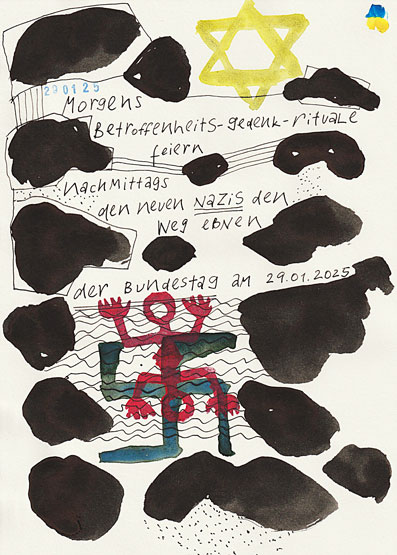 29 01 25
Morgens
Betroffenheits-gedenk-rituale
feiern
nachmittags
den neuen NAZIS den
Weg ebnen
der Bundestag am 29.01.2025